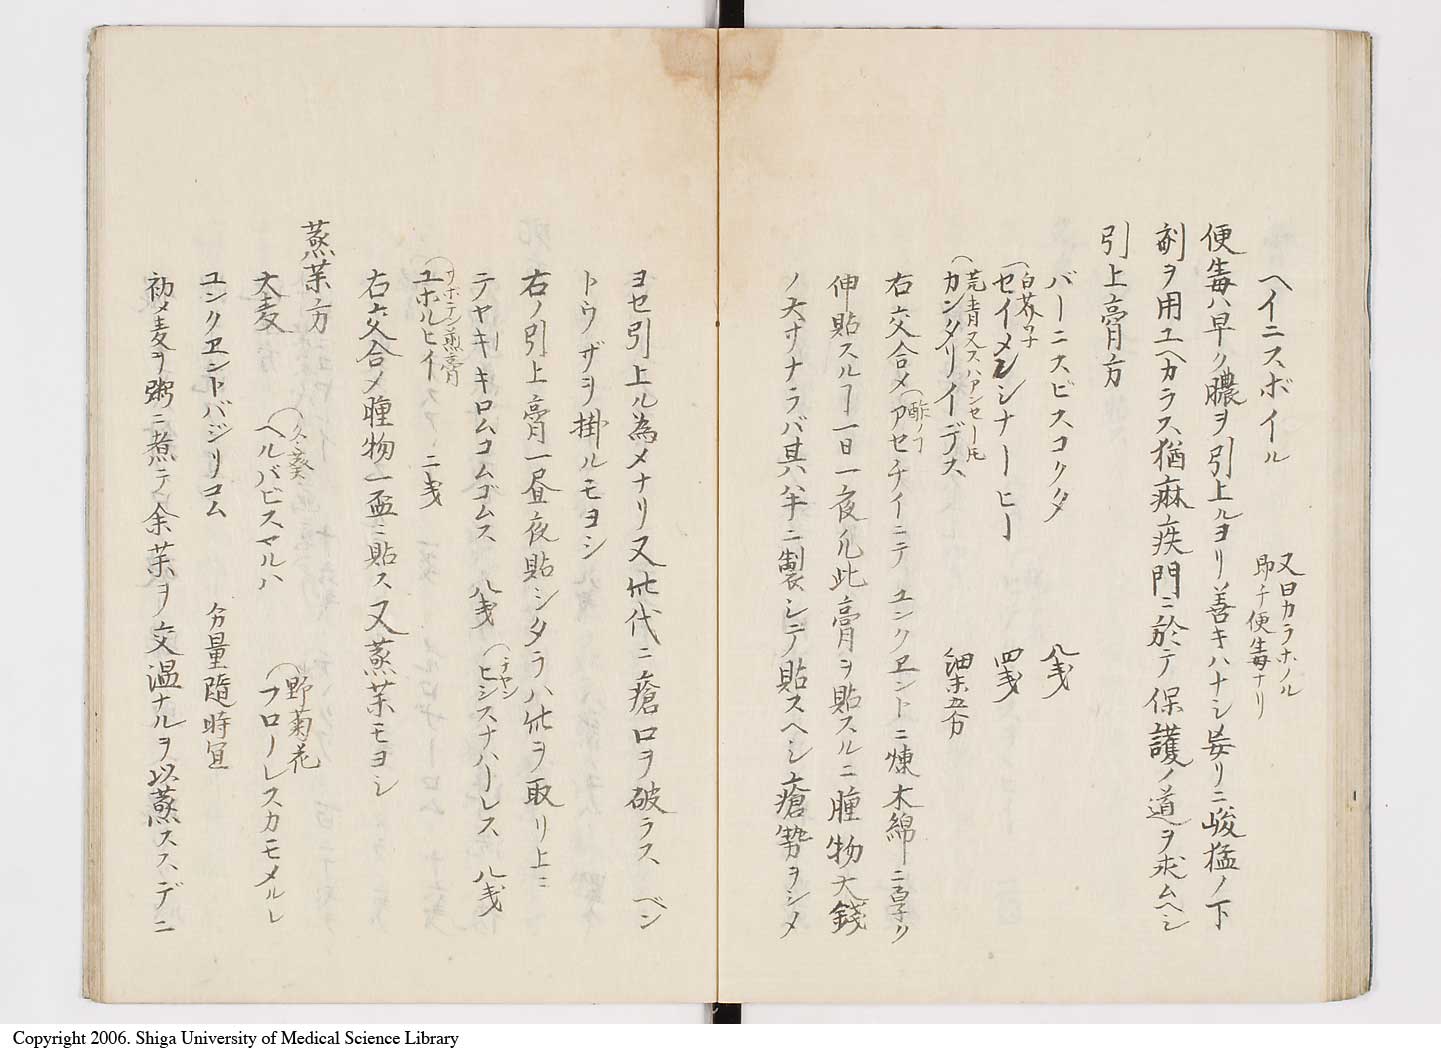 ヘイニスボイル
又曰カラホノル
即チ便毒ナリ
便毒ハ早ク膿ヲ引上ルヨリ善キハナシ妄リニ峻猛ノ下
剤ヲ用ユヘカラス猶麻疾門ニ於テ保護ノ道ヲ求ムヘシ
引上膏方
バーニスビスコクタ 八戔
(白芥子
セイメンシナーヒー 四戔
(芫青又スハアンセール
カンタリイデス 細末五分
右六交合メ(酢ノコ アセチイニテ ユンクヱントニ煉木綿ニ厚ク
伸貼スルヿ一日一夜凡此膏ヲ貼スルニ腫物大銭
ノ大サナラバ其六半ニ製シテ貼スヘシ瘡勢ヲシメ
ヨセ引上ル為メナリ又此代ニ瘡口ヲ破ラス ベン
トウザヲ掛ルモヨシ
右ノ引上膏一昼夜貼シタラハ此ヲ取リ上ニ
テヤキキロムコムゴムス 八戔 (チヤン ヒシスナハーレス 八戔
(サボテン煎膏
ユホルヒイースフ、ニ戔
右六交合メ腫物一盃ニ貼ス又蒸茱モヨシ
蒸茱方
大麦 (久葵 ヘルバビスマルハ (野菊花 フローレスカモメルレ
ユンクヱントバジリコム 分量随時宜
初メ麦ヲ粥ニ煮テ余茱ヲ交温ナルヲ以蒸ススデニ